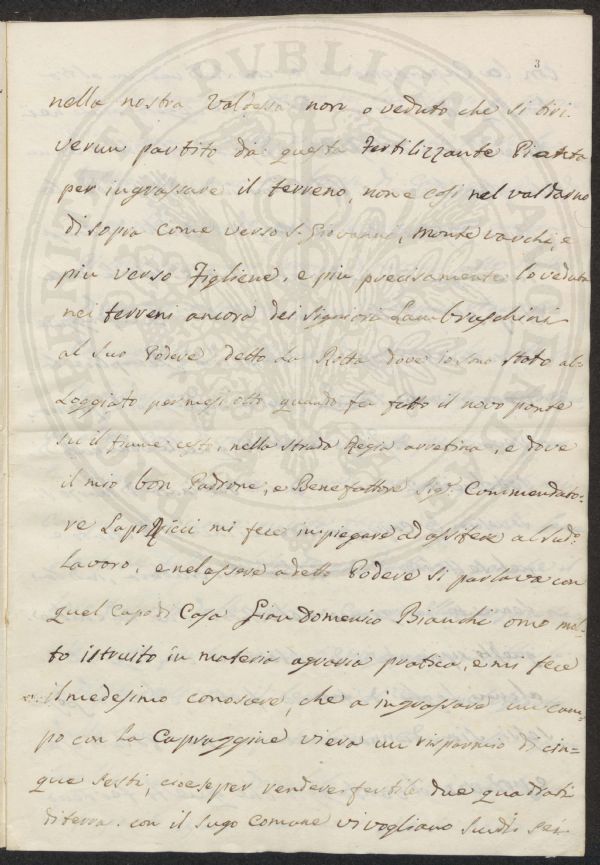 3
nella nostra Valdelsa non o veduto che si tiri
verun partito da questa Fertilizzante Pianta
per ingrassare il terreno, non e così nel valdarno
di sopra come verso S. Giovanni, Monte varchi, e
piu verso Figliene, e piu precisamente lo veduta
nei terreni ancora dei Signiori Lambruschini
al Suo Podere detto La Rotta dove io sono stato al=
Loggiato per mesi otto quando fu fatto il novo ponte
su il fiume cesto, nella strada Regia arretina, e dove
il mio bon Padrone, e Benefattore Sigr. Commendato=
re Lapo Ricci mi fece impiegare ad assistere al sud.o
Lavoro, e nel essere a detto Podere si parlava con
quel Capo di Casa Gian Domenico Bianchi omo mol=
to istruito in materia agraria pratica, e mi fece
il medesimo conoscere, che a ingrassare un cam=
po con la Capraggine viera un risparmio di cin=
que sesti, cioe se per rendere fertile due quadrati
di terra con il sugo Comune vi vogliano scudi sei